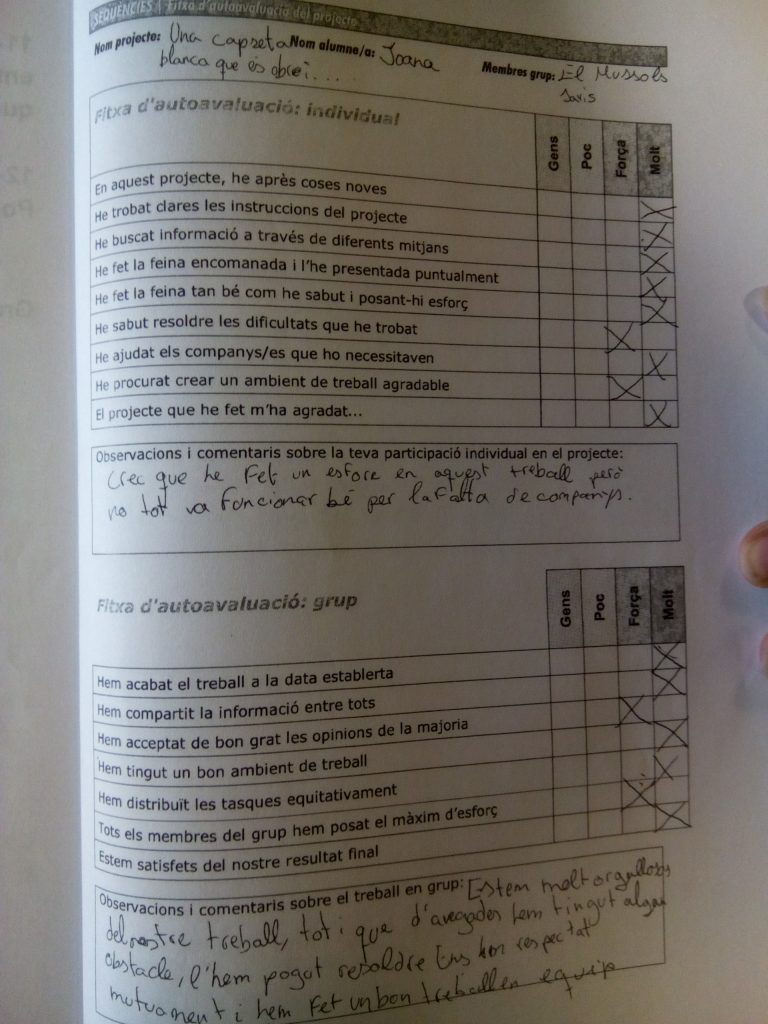 SEQÜÈNCIES 1 Fitxa d'autoavaluació del projecte
Nom projecte: Una capseta Nom alumne/a: Joana Membres grup: El Mussols
blanca que és obrei....
savis
Fitxa d'autoavaluació: individual
Gens Poc Força Molt
En aquest projecte, he après coses noves
He trobat clares les instruccions del projecte
He buscat informació a través de diferents mitjans
He fet la feina encomanada i l'he presentada puntualment
He fet la feina tan bé com he sabut i posant-hi esforç
He sabut resoldre les dificultats que he trobat
He ajudat els companys/es que ho necessitaven
He procurat crear un ambient de treball agradable
El projecte que he fet m'ha agradat...
Observacions i comentaris sobre la teva participació individual en el projecte:
Crec que he Fet un esforç en aquest treball però
no tot va Funcionar bé per la falta de companys.
Fitxa d'autoavaluació: grup
Gens Poc Força Molt
Hem acabat el treball a la data establerta
Hem compartit la informació entre tots
Hem acceptat de bon grat les opinions de la majoria
Hem tingut un bon ambient de treball
Hem distribuït les tasques equitativament
Tots els membres del grup hem posat el màxim d'esforç
Estem satisfets del nostre resultat final
Observacions i comentaris sobre el treball en grup: Estem molt orgullosos
del nostre treball, tot i que d'avegades hem tingut algun
obstacle, l'hem pogut resoldre Ens hem respectat
mutuament i hem Fet un bon treball en equip